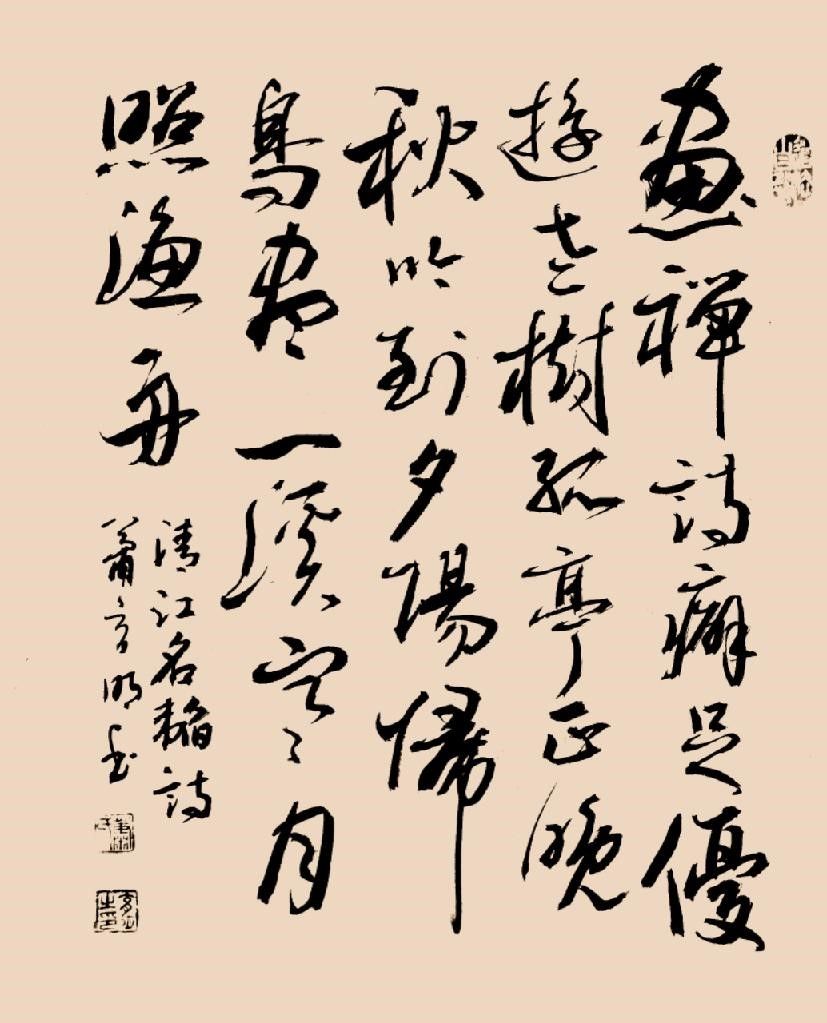 畫禪詩癖足優
遊老樹孤亭正晚
秋吟到夕陽歸
鳥盡一溪寒月
照漁舟
清江名韜詩
蕭明書